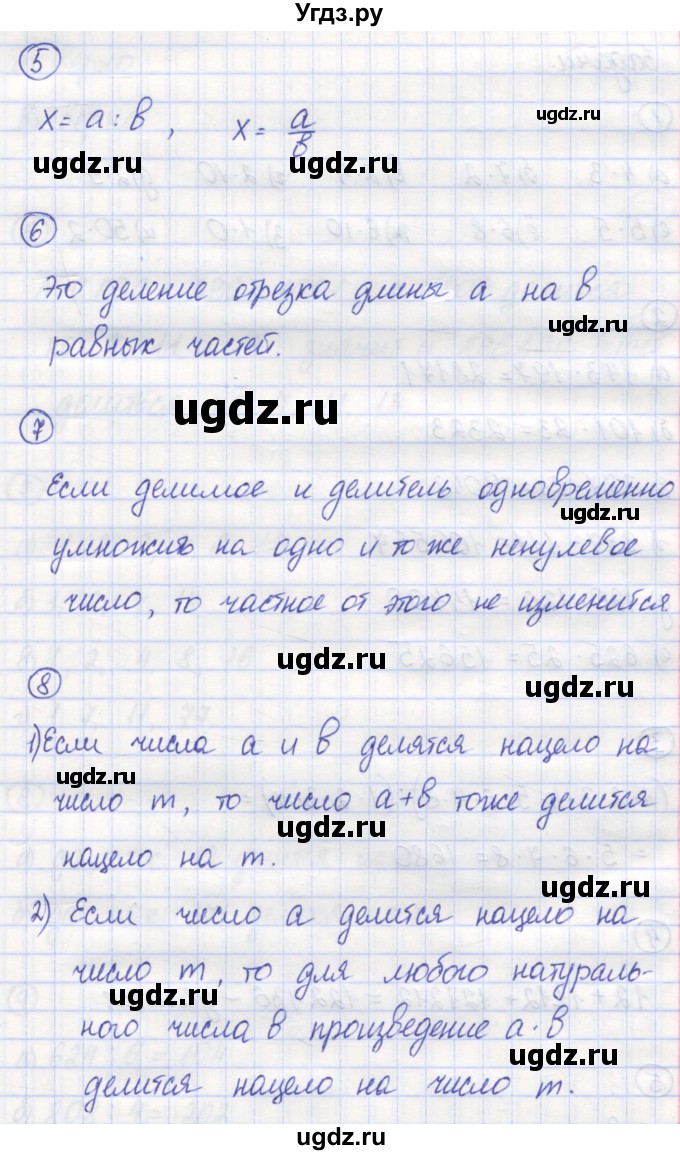 Угдз.ру
5
x = a : b, x = a/b
ugdz.ru ugdz.ru ugdz.ru
6
Это деление отрезка длины a на b
ugdz.ru
равных частей.
ugdz.ru
7
Если делимое и делитель одновременно
ugdz.ru
умножить на одно и то же ненулевое
число, то частное от этого не изменится
ugdz.ru
8
ugdz.ru
1) Если числа a и b делятся нацело на
ugdz.ru
число m, то число a+b тоже делится
ugdz.ru
нацело на m.
ugdz.ru
2) Если число a делится нацело на
число m, то для любого натураль-
ugdz.ru
ного числа b произведение a · b
ugdz.ru
делится нацело на число m.
ugdz.ru